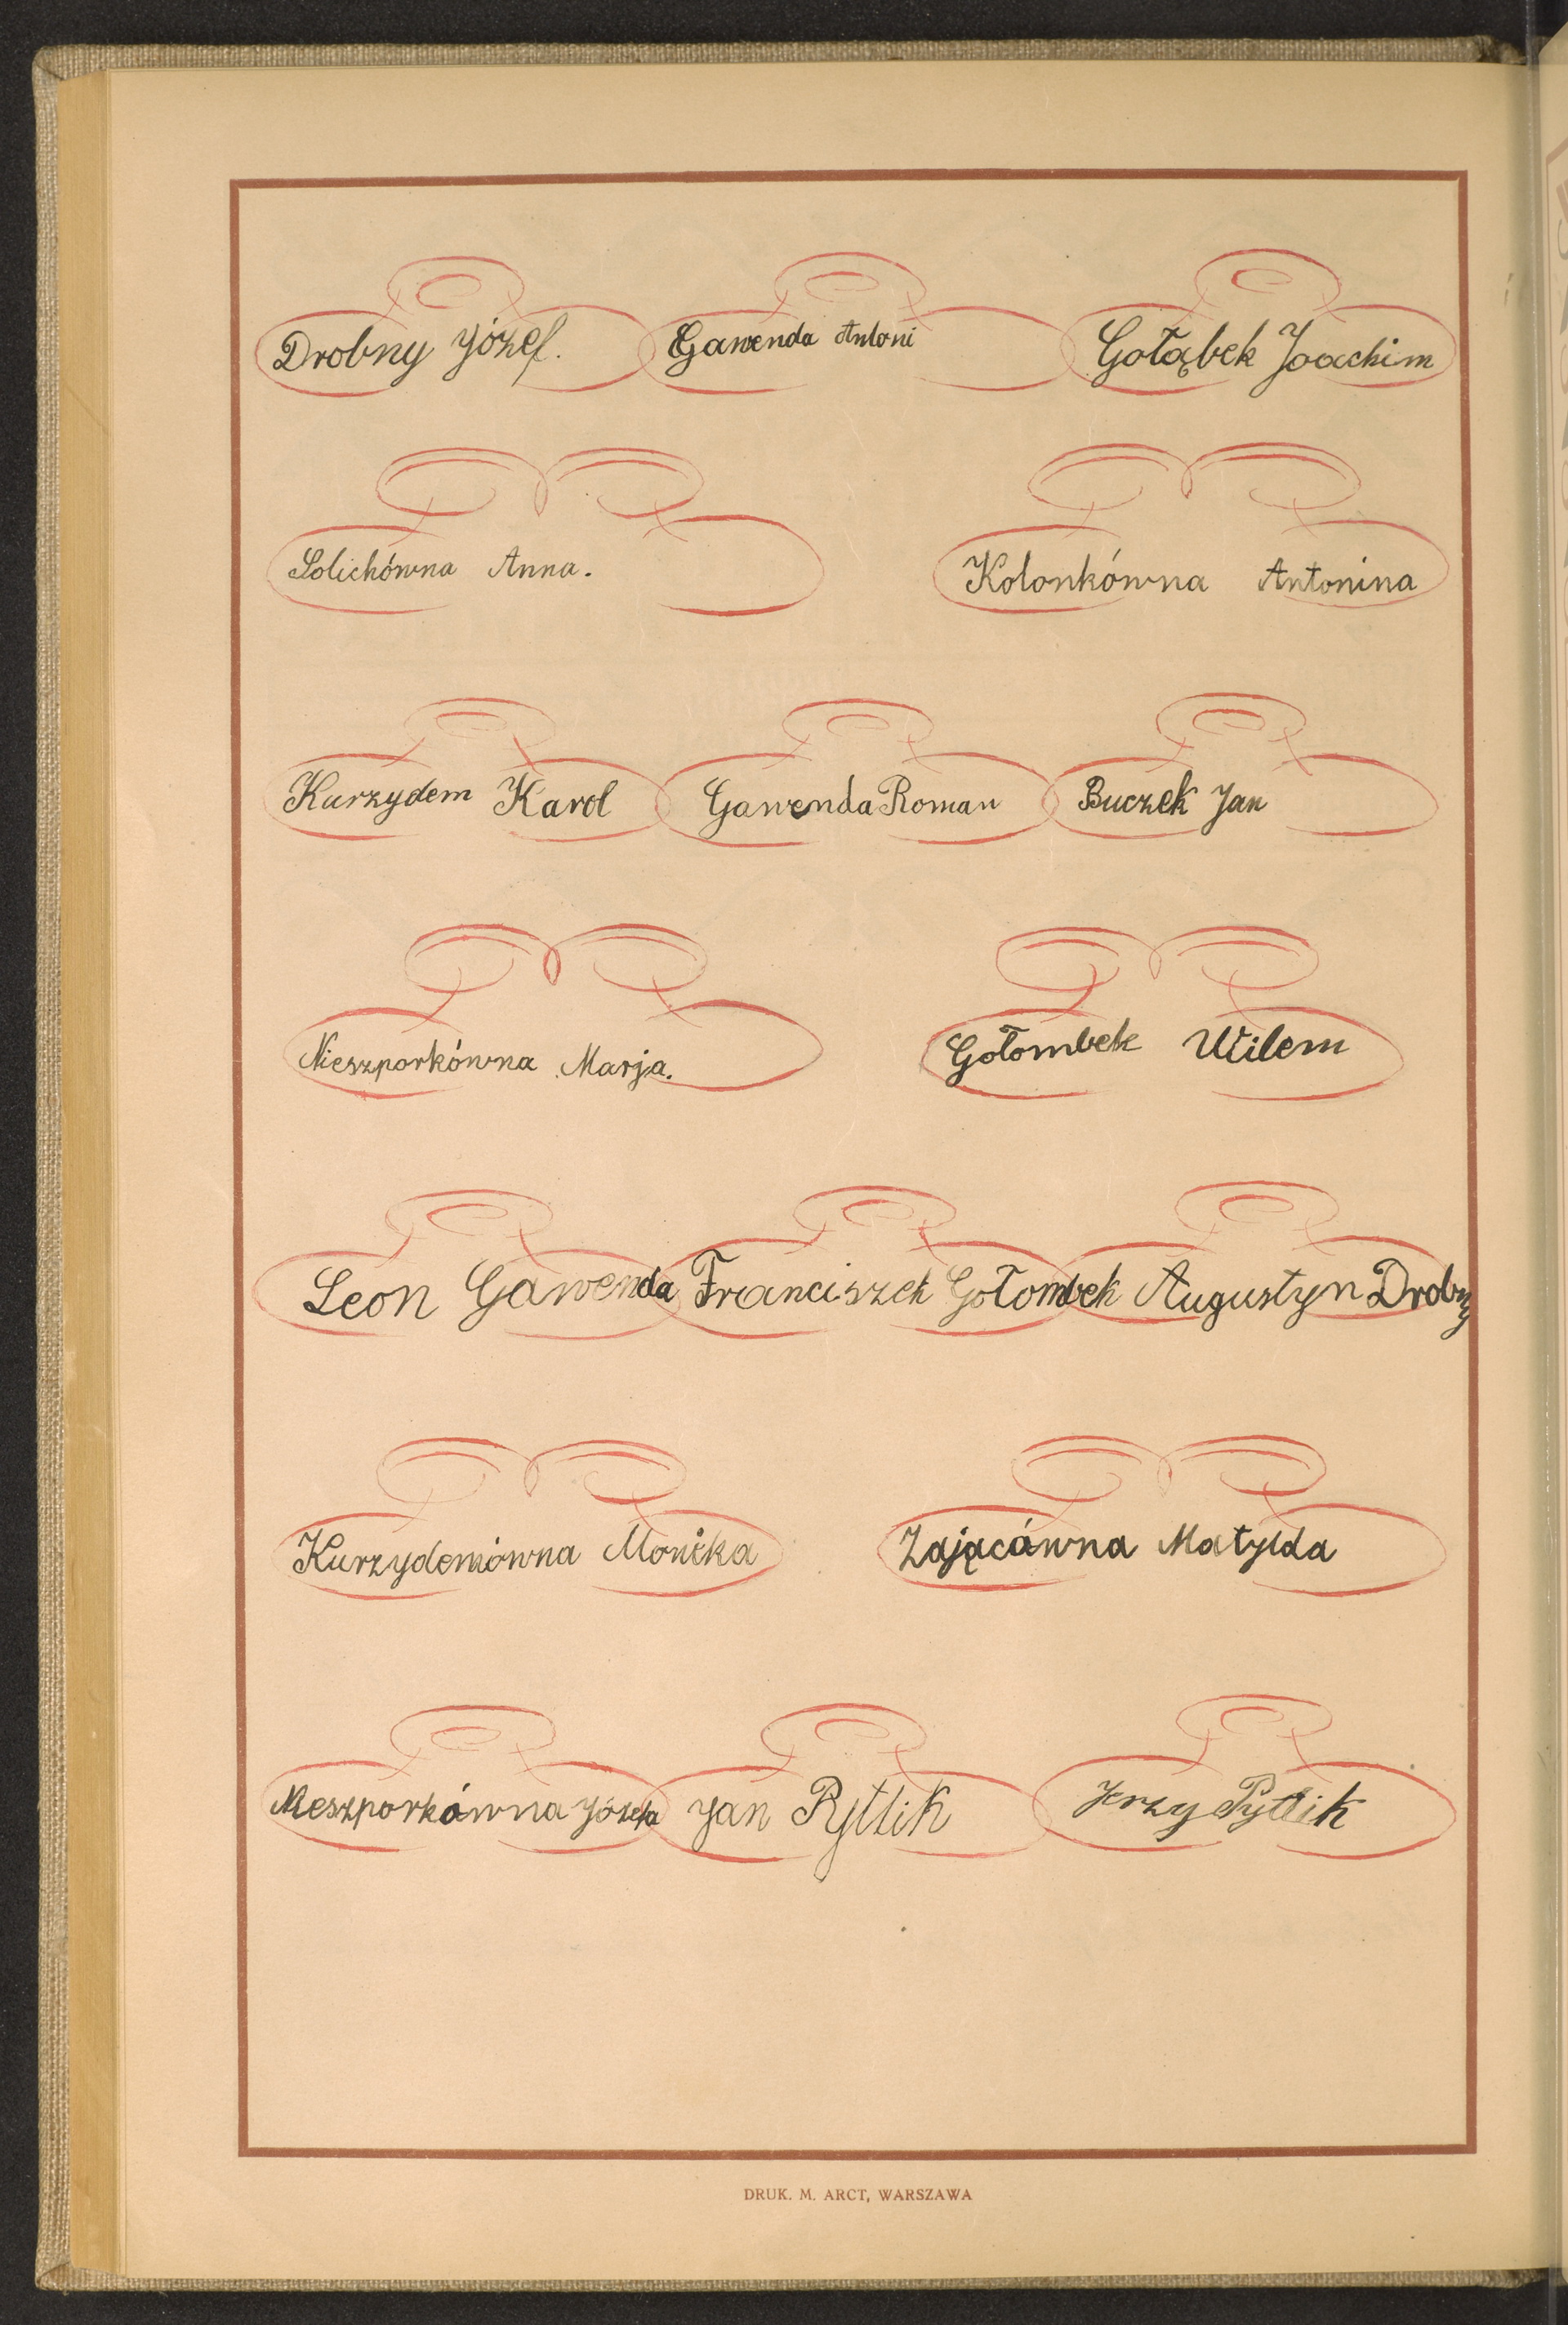 Drobny Józef. Gawenda Antoni Gołąbek Joachim
Solichówna Anna. Kolonkówna Antonina
Kurzydem Karol Gawenda Roman Buczek Jan
Nieszporkówna Marja. Gołombek Wilem
Leon Gawenda Franciszek Gołombek Augustyn Drobny
Kurzydemówna Monika Zającówna Matylda
Nieszporkówna Józefa Jan Pytlik Jerzy Pytlik
DRUK. M. ARCT, WARSZAWA